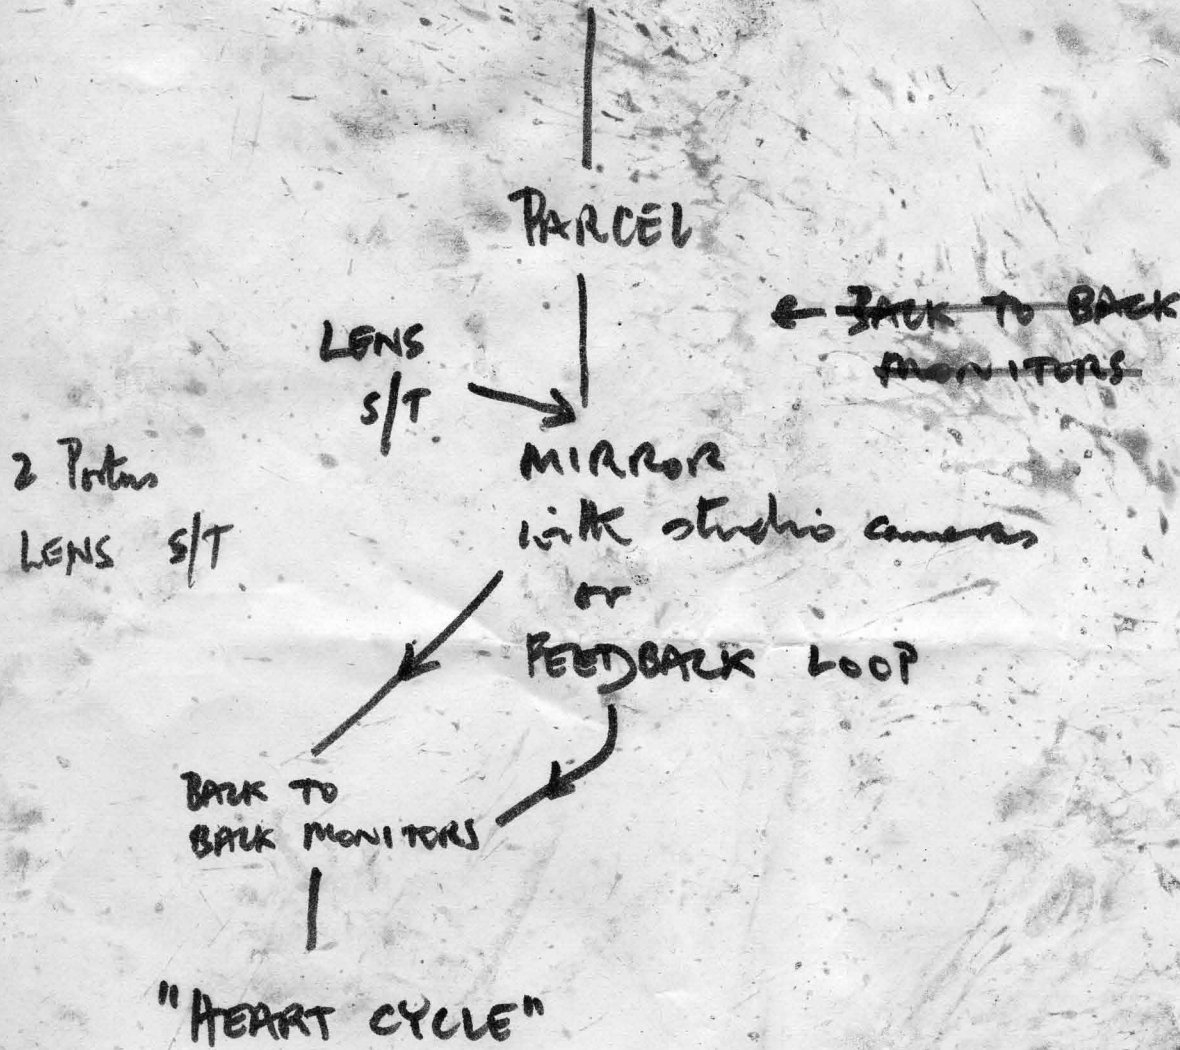 PARCEL
← BACK TO BACK
MONITORS
LENS
S/T
2 Portas
LENS S/T
MIRROR
with studio cameras
or
FEEDBACK LOOP
BACK TO
BACK MONITORS
"HEART CYCLE"